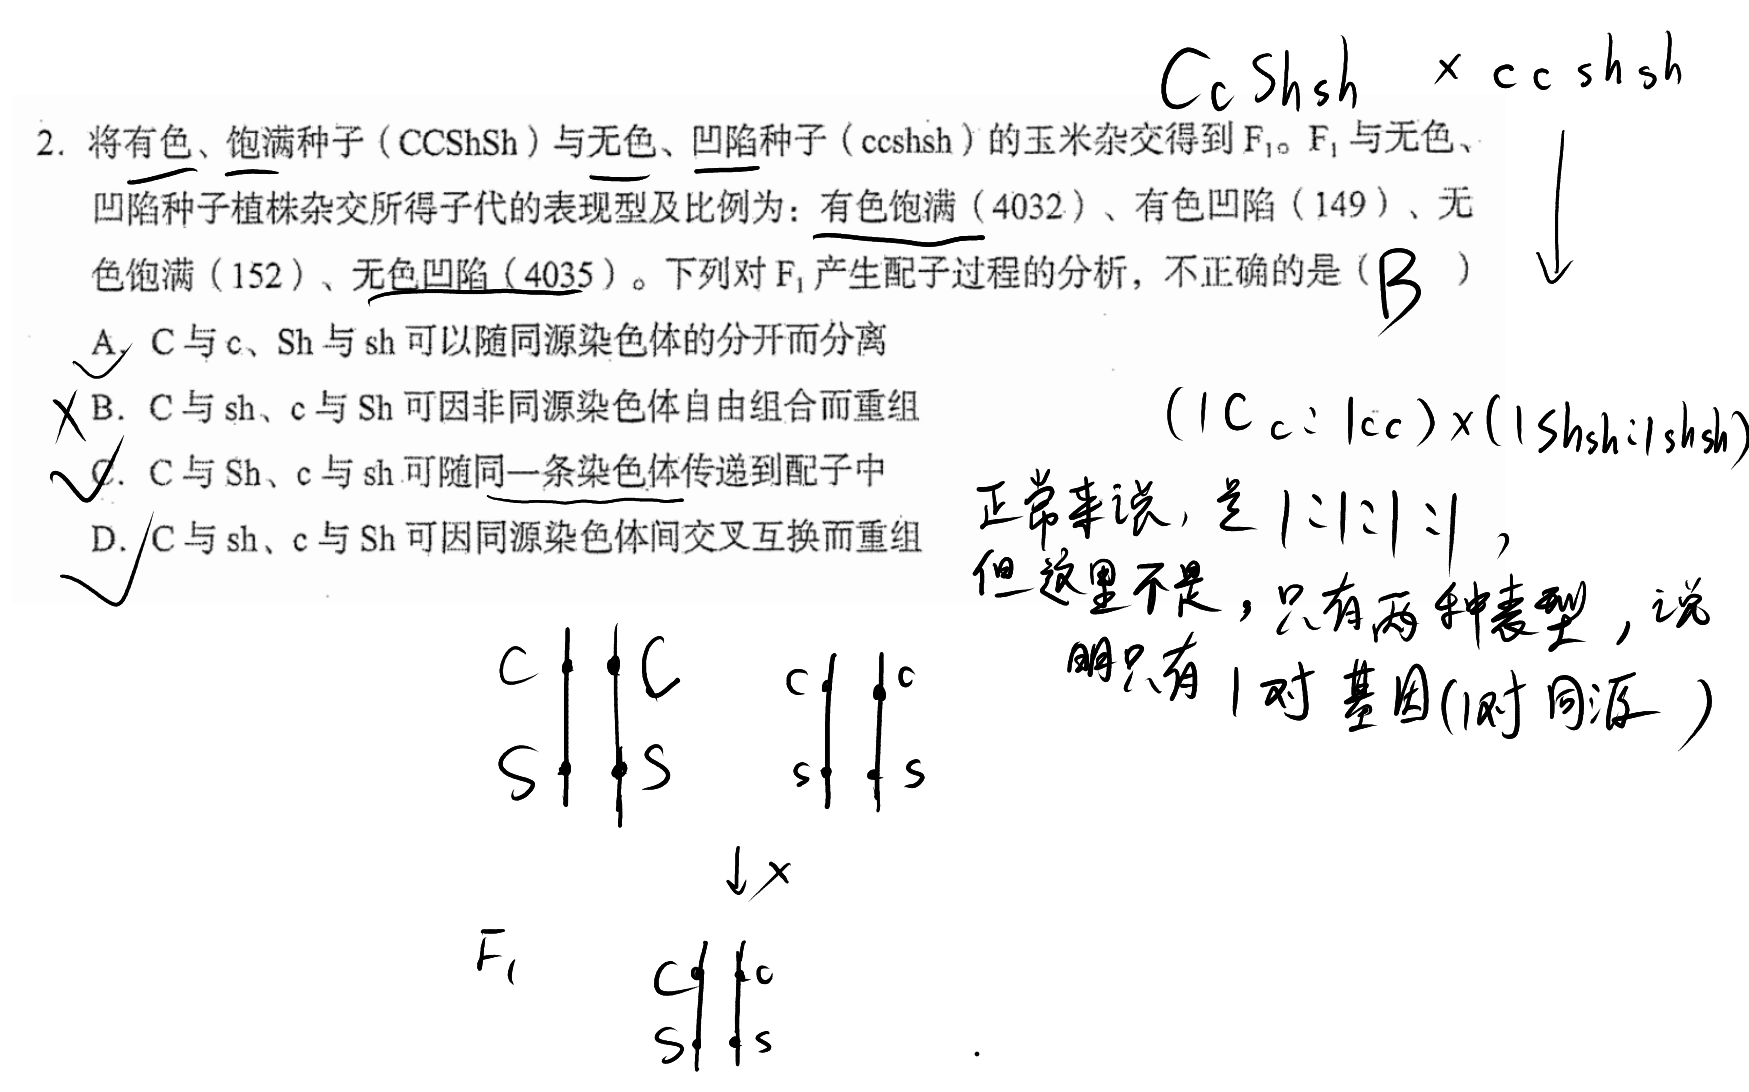 CcShsh × ccshsh
2. 将有色、饱满种子（CCShSh）与无色、凹陷种子（ccshsh）的玉米杂交得到 F₁。F₁ 与无色、
凹陷种子植株杂交所得子代的表现型及比例为：有色饱满（4032）、有色凹陷（149）、无
色饱满（152）、无色凹陷（4035）。下列对 F₁ 产生配子过程的分析，不正确的是（B）
A. C 与 c、Sh 与 sh 可以随同源染色体的分开而分离
B. C 与 sh、c 与 Sh 可因非同源染色体自由组合而重组
C. C 与 Sh、c 与 sh 可随同一条染色体传递到配子中
D. C 与 sh、c 与 Sh 可因同源染色体间交叉互换而重组
(1Cc:1cc)×(1Shsh:1shsh)
正常来说，是1:1:1:1，
但这里不是，只有两种表型，说
明只有1对基因(1对同源)
C C c c
S S s s
↓×
F₁
C c
S s